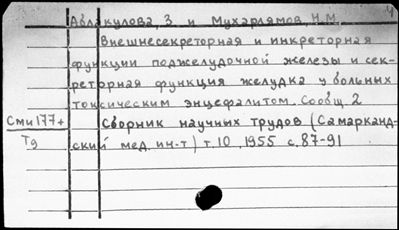 Аблакулова, З и Мухарлямов, Н.М.
Внешнесекреторная и инкреторная
функции поджелудочной железы и сек-
реторная функция желудка у больных
токсическим энцефалитом. Сообщ. 2
Сми 177+ Сборник научных трудов (Самарканд-
Т9 ский мед. ин-т) т. 10 1955 с. 87-91